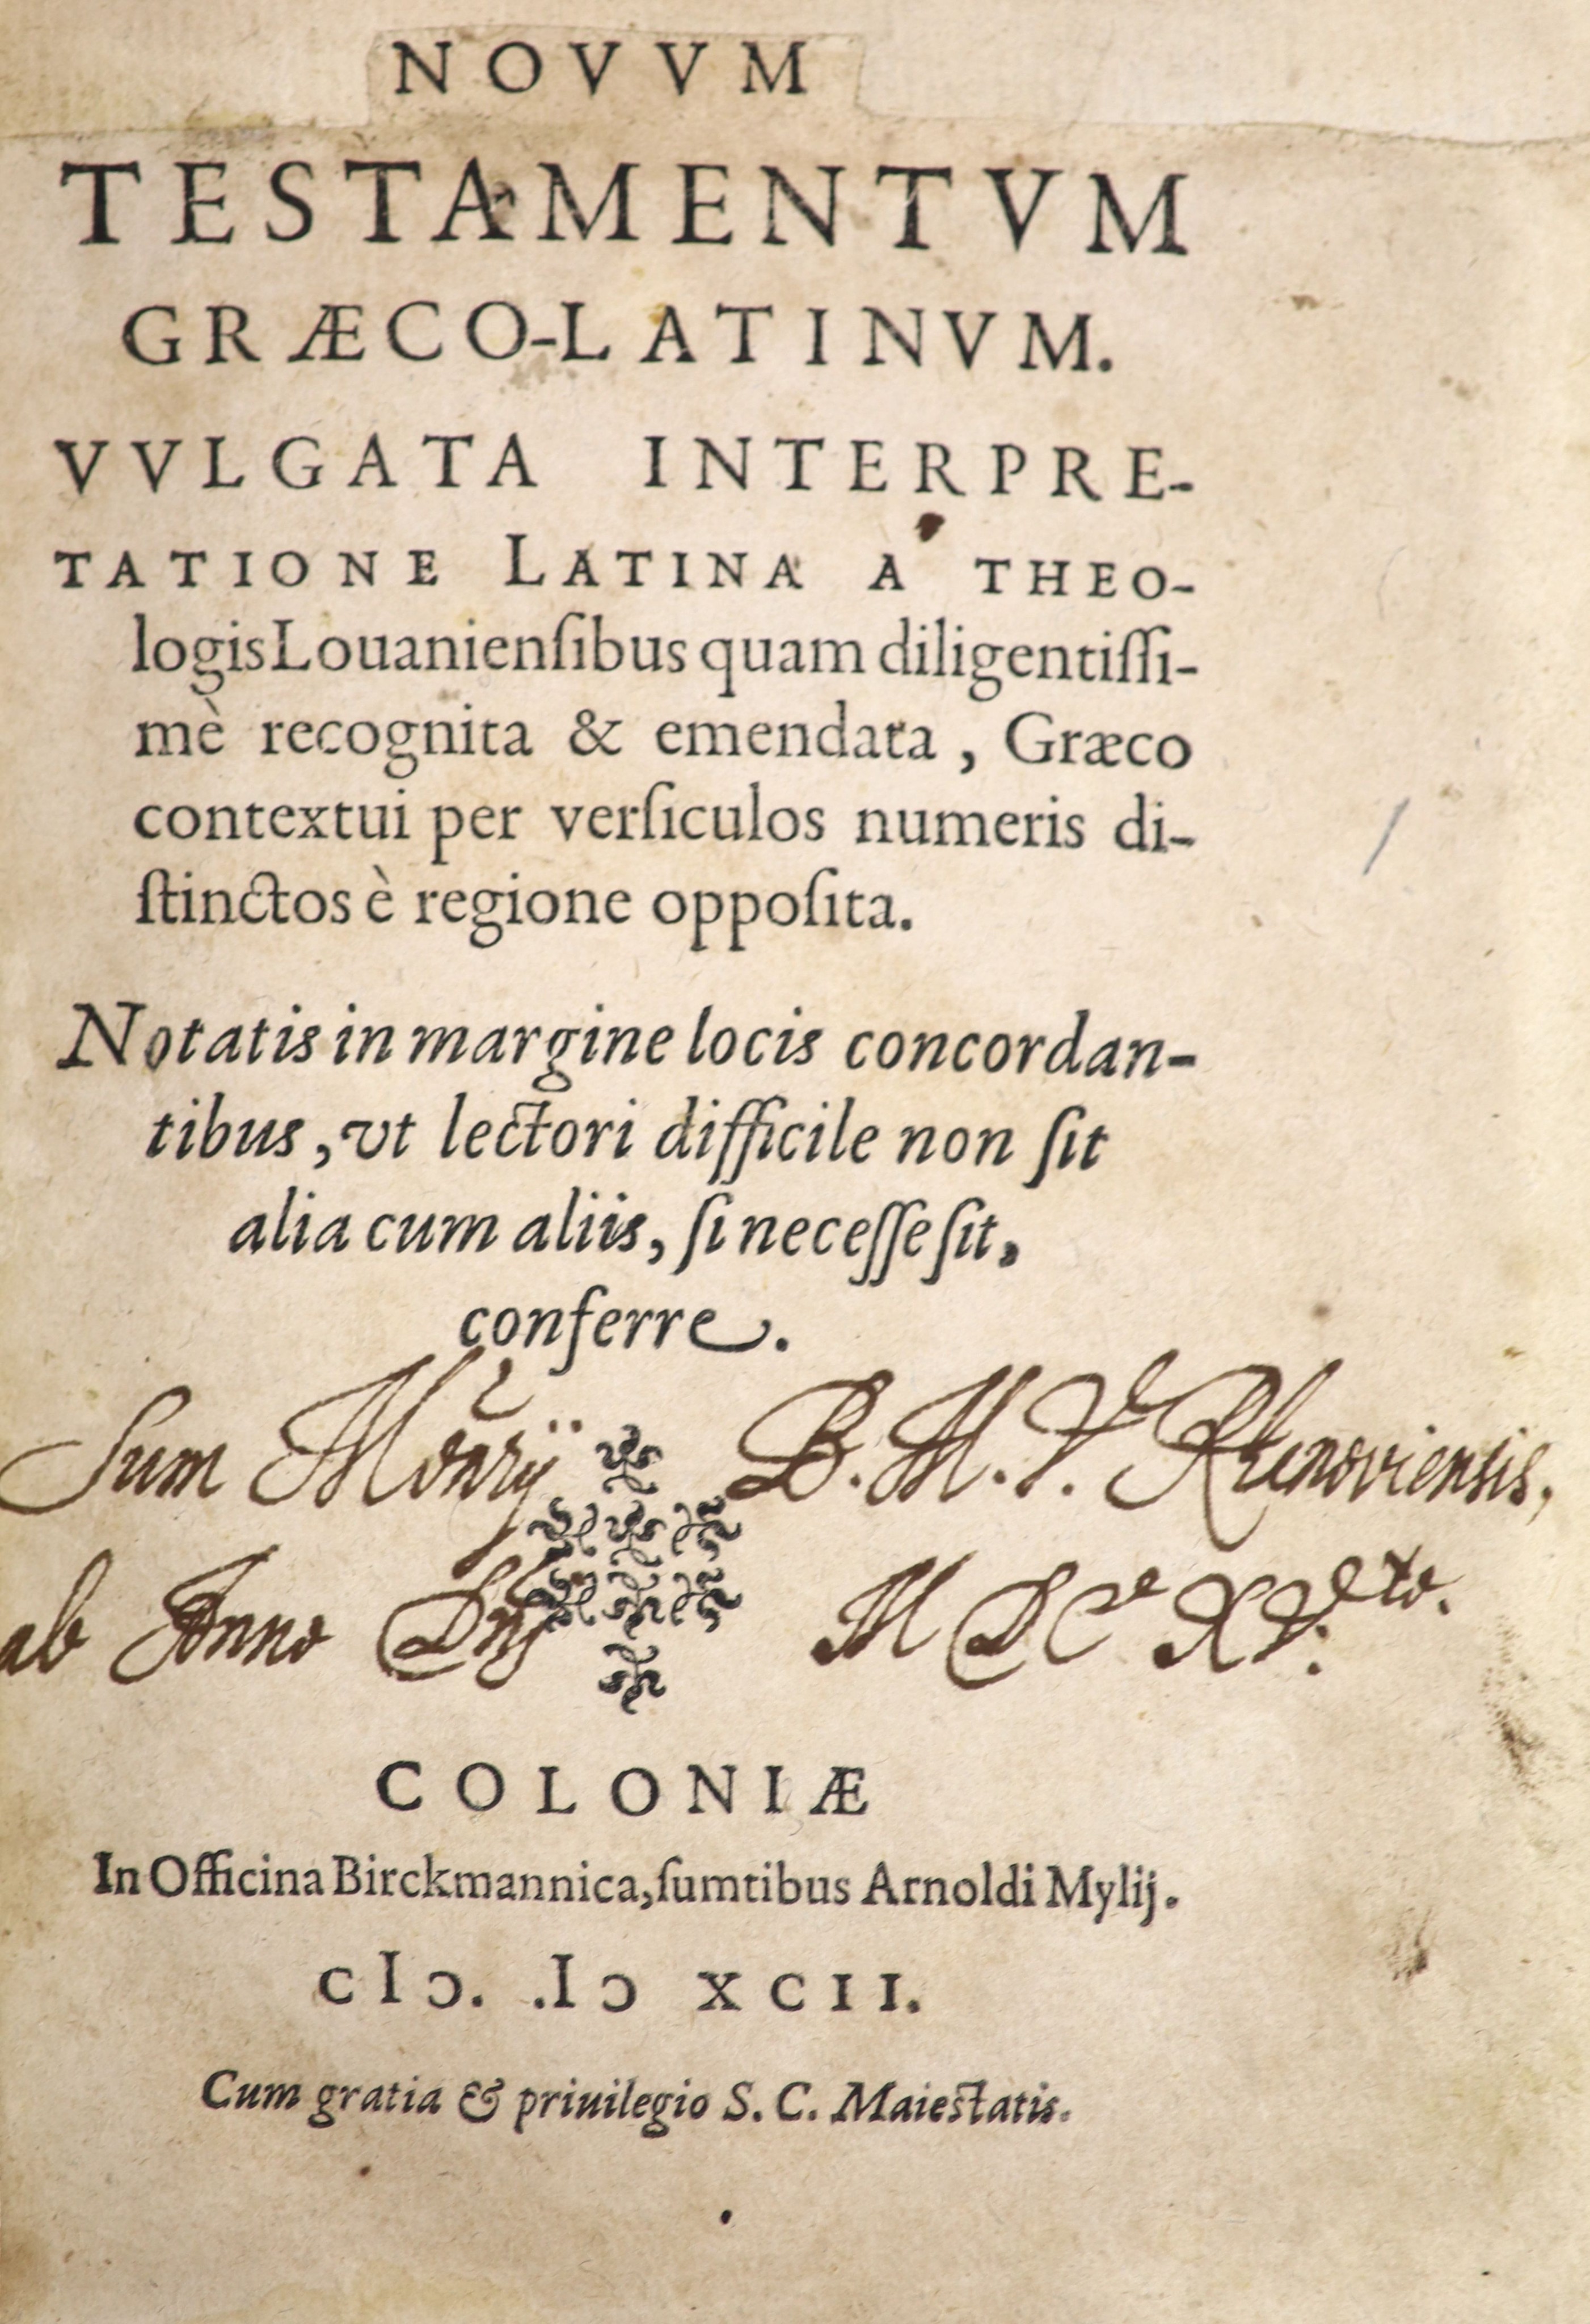 NOVVM
TESTAMENTVM
GRÆCO-LATINVM.
VVLGATA INTERPRE-
TATIONE LATINA A THEO-
logis Louanienſibus quam diligentiſſi-
mè recognita & emendata, Græco
contextui per verſiculos numeris di-
ſtinctos è regione oppoſita.
Notatis in margine locis concordan-
tibus, vt lectori difficile non ſit
alia cum aliis, ſi neceſſe ſit,
conferre.
Sum Monrÿ B. M. V. Rhenoviensis,
ab Anno Dnj M DC XV.to.
COLONIÆ
In Officina Birckmannica, ſumtibus Arnoldi Mylij.
cIↄ. .Iↄ XCII.
Cum gratia & priuilegio S. C. Maieſtatis.